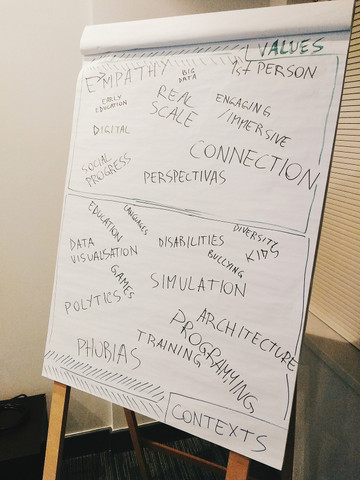 VALUES
EMPATHY
BIG
DATA
1st PERSON
EARLY
EDUCATION
REAL
SCALE
ENGAGING
/IMMERSIVE
DIGITAL
CONNECTION
SOCIAL
PROGRESS
PERSPECTIVAS
EDUCATION
LANGUAGES
DIVERSITY
KIDS
DATA
VISUALSATION
DISABILITIES
BULLYING
GAMES
SIMULATION
POLYTICS
ARCHITECTURE
PROGRAMMING
TRAINING
PHUBIAS
CONTEXTS